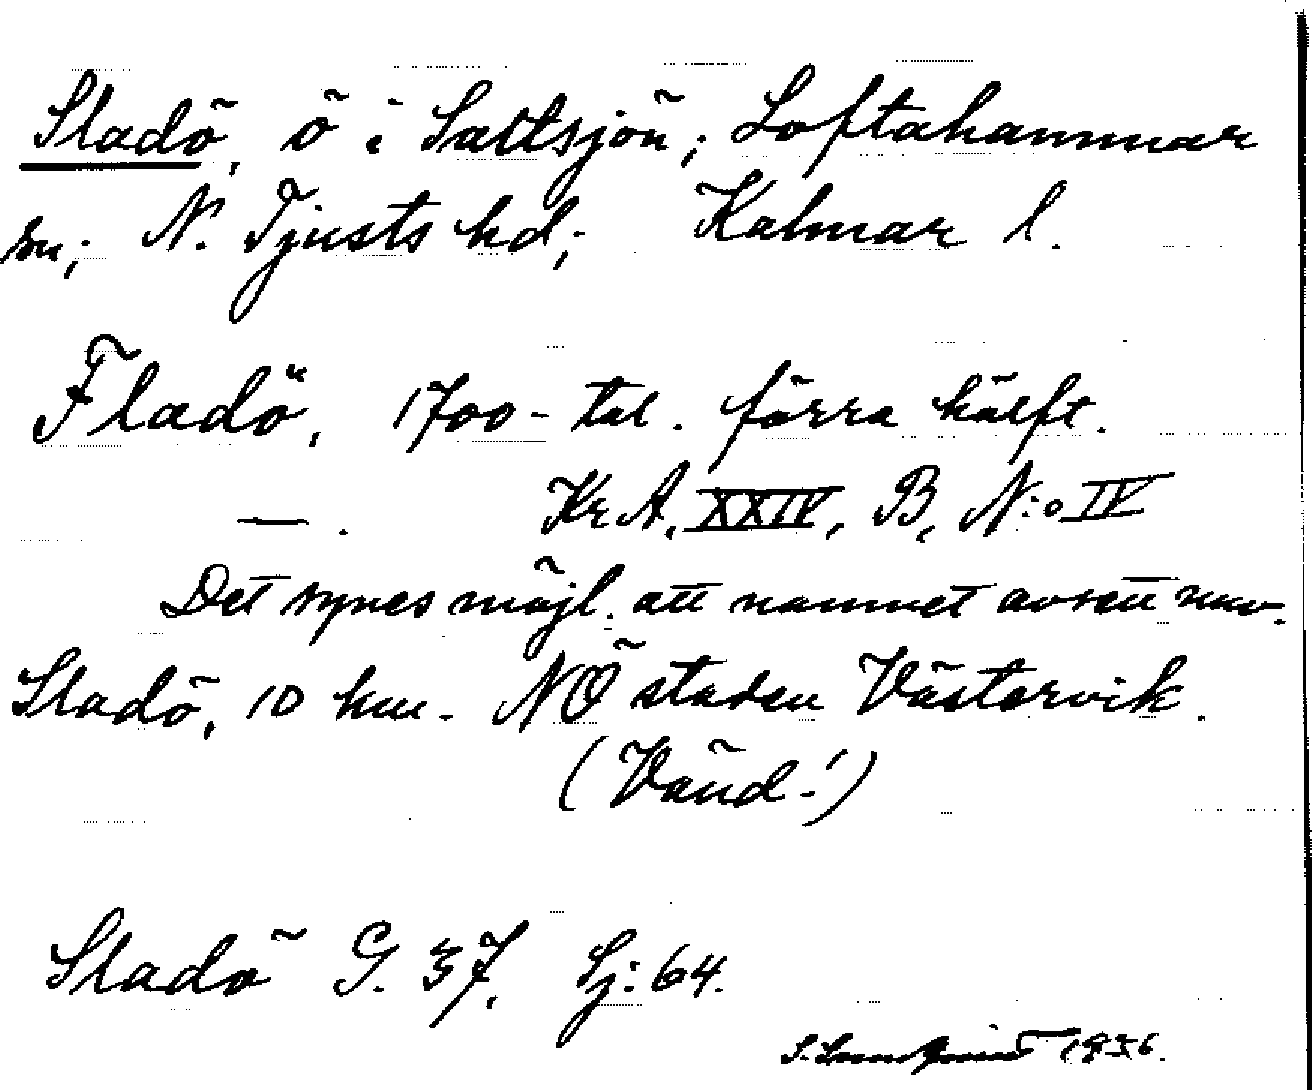 Sladö, ö i Saltsjön; Loftahammar
sn; N. Tjusts hd; Kalmar l.
Fladö, 1700-tal. förra hälft.
—. Kr A. XXIV, B, N:o IV
Det synes möjl. att namnet avsett nuv.
Sladö, 10 km. NÖ staden Västervik.
(Vänd!)
Sladö G. 37, Sj: 64.
1956.